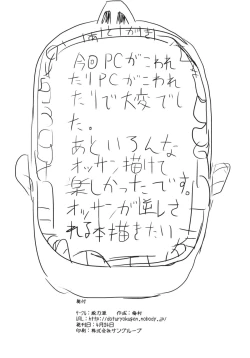 あとがき
今回PCがこわれ
たりPCがこわれ
たりで大変でし
た。
あといろんな
オッサン描けて
楽しかったです。
オッサンが逆しさ
れる本描きたい
奥付
発行日:4月26日
印刷:株式会社サングループ